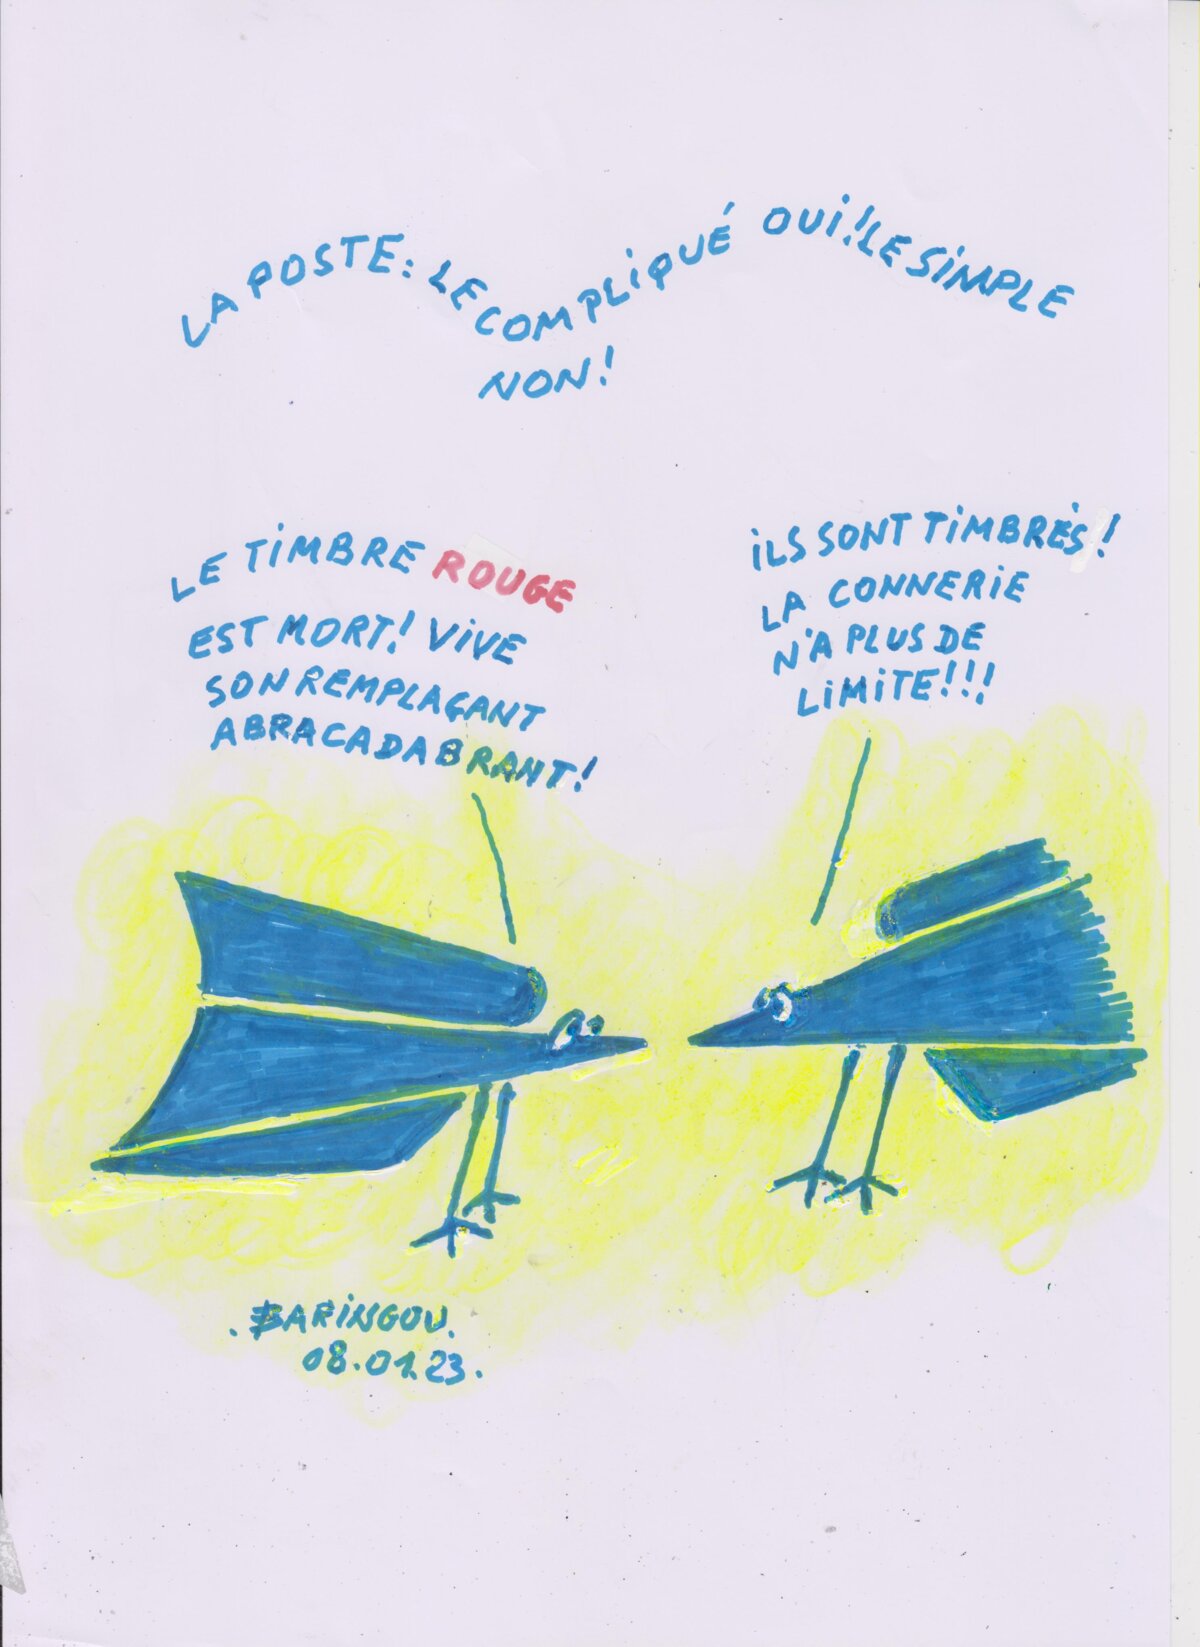 LA POSTE: LE COMPLIQUÉ OUi! LE SiMPLE
NON!
LE TiMBRE ROUGE
EST MORT! ViVE
SON REMPLAÇANT
ABRACADABRANT!
iLS SONT TiMBRÉS!
LA CONNERiE
N'A PLUS DE
LiMiTE!!!
. BARiNGOU.
08.01.23.